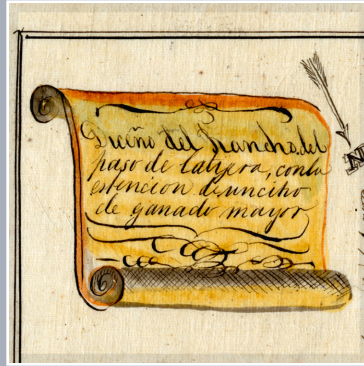 Diceño del Rancho, del
paso de latijera, conla
estencion deuncitio
de ganado mayor
N